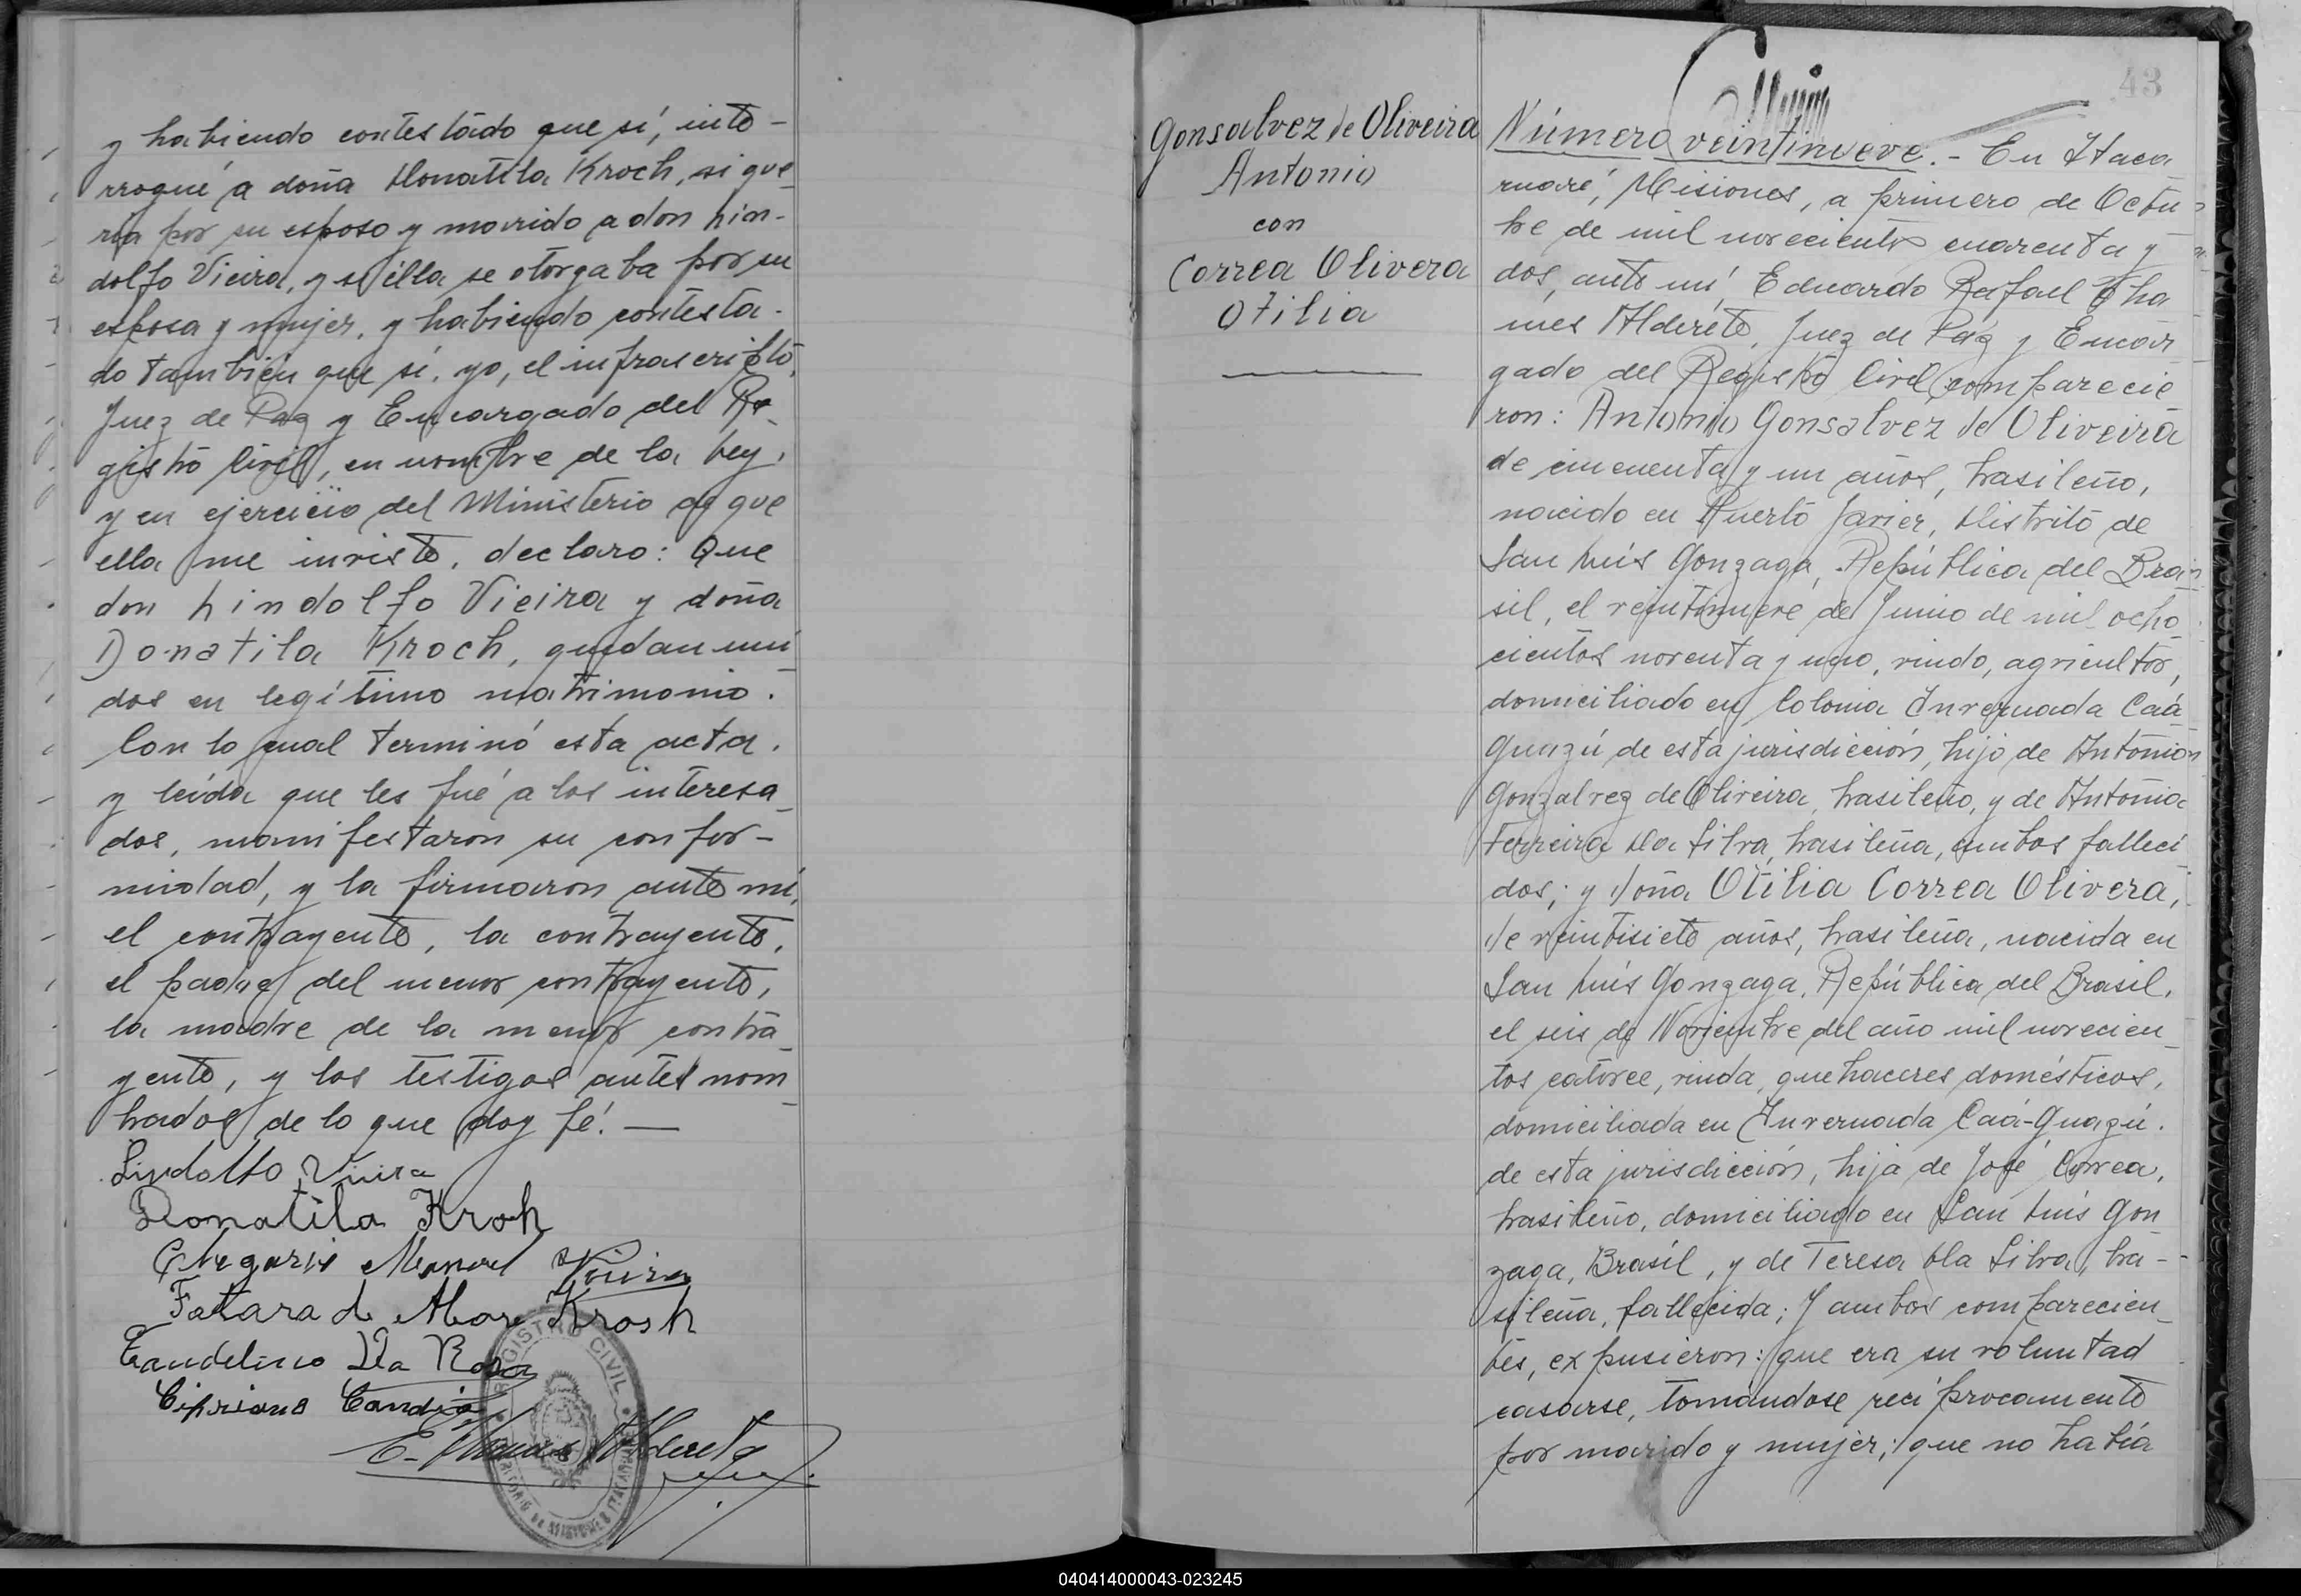 y habiendo contestado que sí, inte-
rrogué a doña Donatila Kroch, si que_
ría por su esposo y marido a don Lin-
dolfo Vieira, y si ella se otorgaba por su
esposa y mujer, y habiendo contesta-
do también que sí, yo, el infrascripto,
Juez de Paz y Encargado del Re_
gistro Civil, en nombre de la Ley,
y en ejercicio del Ministerio de que
ella me inviste, declaro: Que
don Lindolfo Vieira y doña
Donatila Kroch, quedan uni
dos en legítimo matrimonio.
Con lo cual terminó esta acta,
y leída que les fué a los interesa_
dos, manifestaron su confor-
midad, y la firmaron ante mí,
el contrayente, la contrayente,
el padre del menor contrayente,
la madre de la menor contra_
yente, y los testigos antes nom_
brados de lo que doy fé.—
Lindolfo Vieira
Donatila Kroh
Manoel Vieira
de Krosh
Da Rosa
Cipriano Candia
E. Alderete
REGISTRO CIVIL
43
Gonsalvez de Oliveira
Antonio
con
Correa Olivera
Otilia
Número veintinueve.- En Itaca_
ruaré, Misiones, a primero de Octu
bre de mil novecientos cuarenta y
dos, ante mí, Eduardo Rafael Cha
ues Alderete, Juez de Paz y Encar
gado del Registro Civil comparecie
ron: Antonio Gonsalvez de Oliveira
de cincuenta y un años, brasileño,
nacido en Puerto Javier, Distrito de
San Luis Gonzaga, República del Bra
sil, el veintinueve de Junio de mil ocho
cientos noventa y uno, viudo, agricultor,
domiciliado en Colonia Invernada Caá
Guazú de esta jurisdicción, hijo de Antonio
Gonzalvez de Oliveira, brasileño, y de Antonia
Ferreira Da Silva, brasileña, ambos falleci
dos; y doña Otilia Correa Olivera,
de veintisiete años, brasileña, nacida en
San Luis Gonzaga, República del Brasil,
el seis de Noviembre del año mil novecien_
tos catorce, viuda, quehaceres domésticos,
domiciliada en Invernada Caá-Guazú.
de esta jurisdicción, hija de José Correa,
brasileño, domiciliado en San Luis Gon
zaga, Brasil, y de Teresa Da Silva, bra-
sileña, fallecida; Y ambos comparecien_
tes, expusieron: que era su voluntad
casarse, tomándose recíprocamente
por marido y mujer; que no había
040414000043-023245